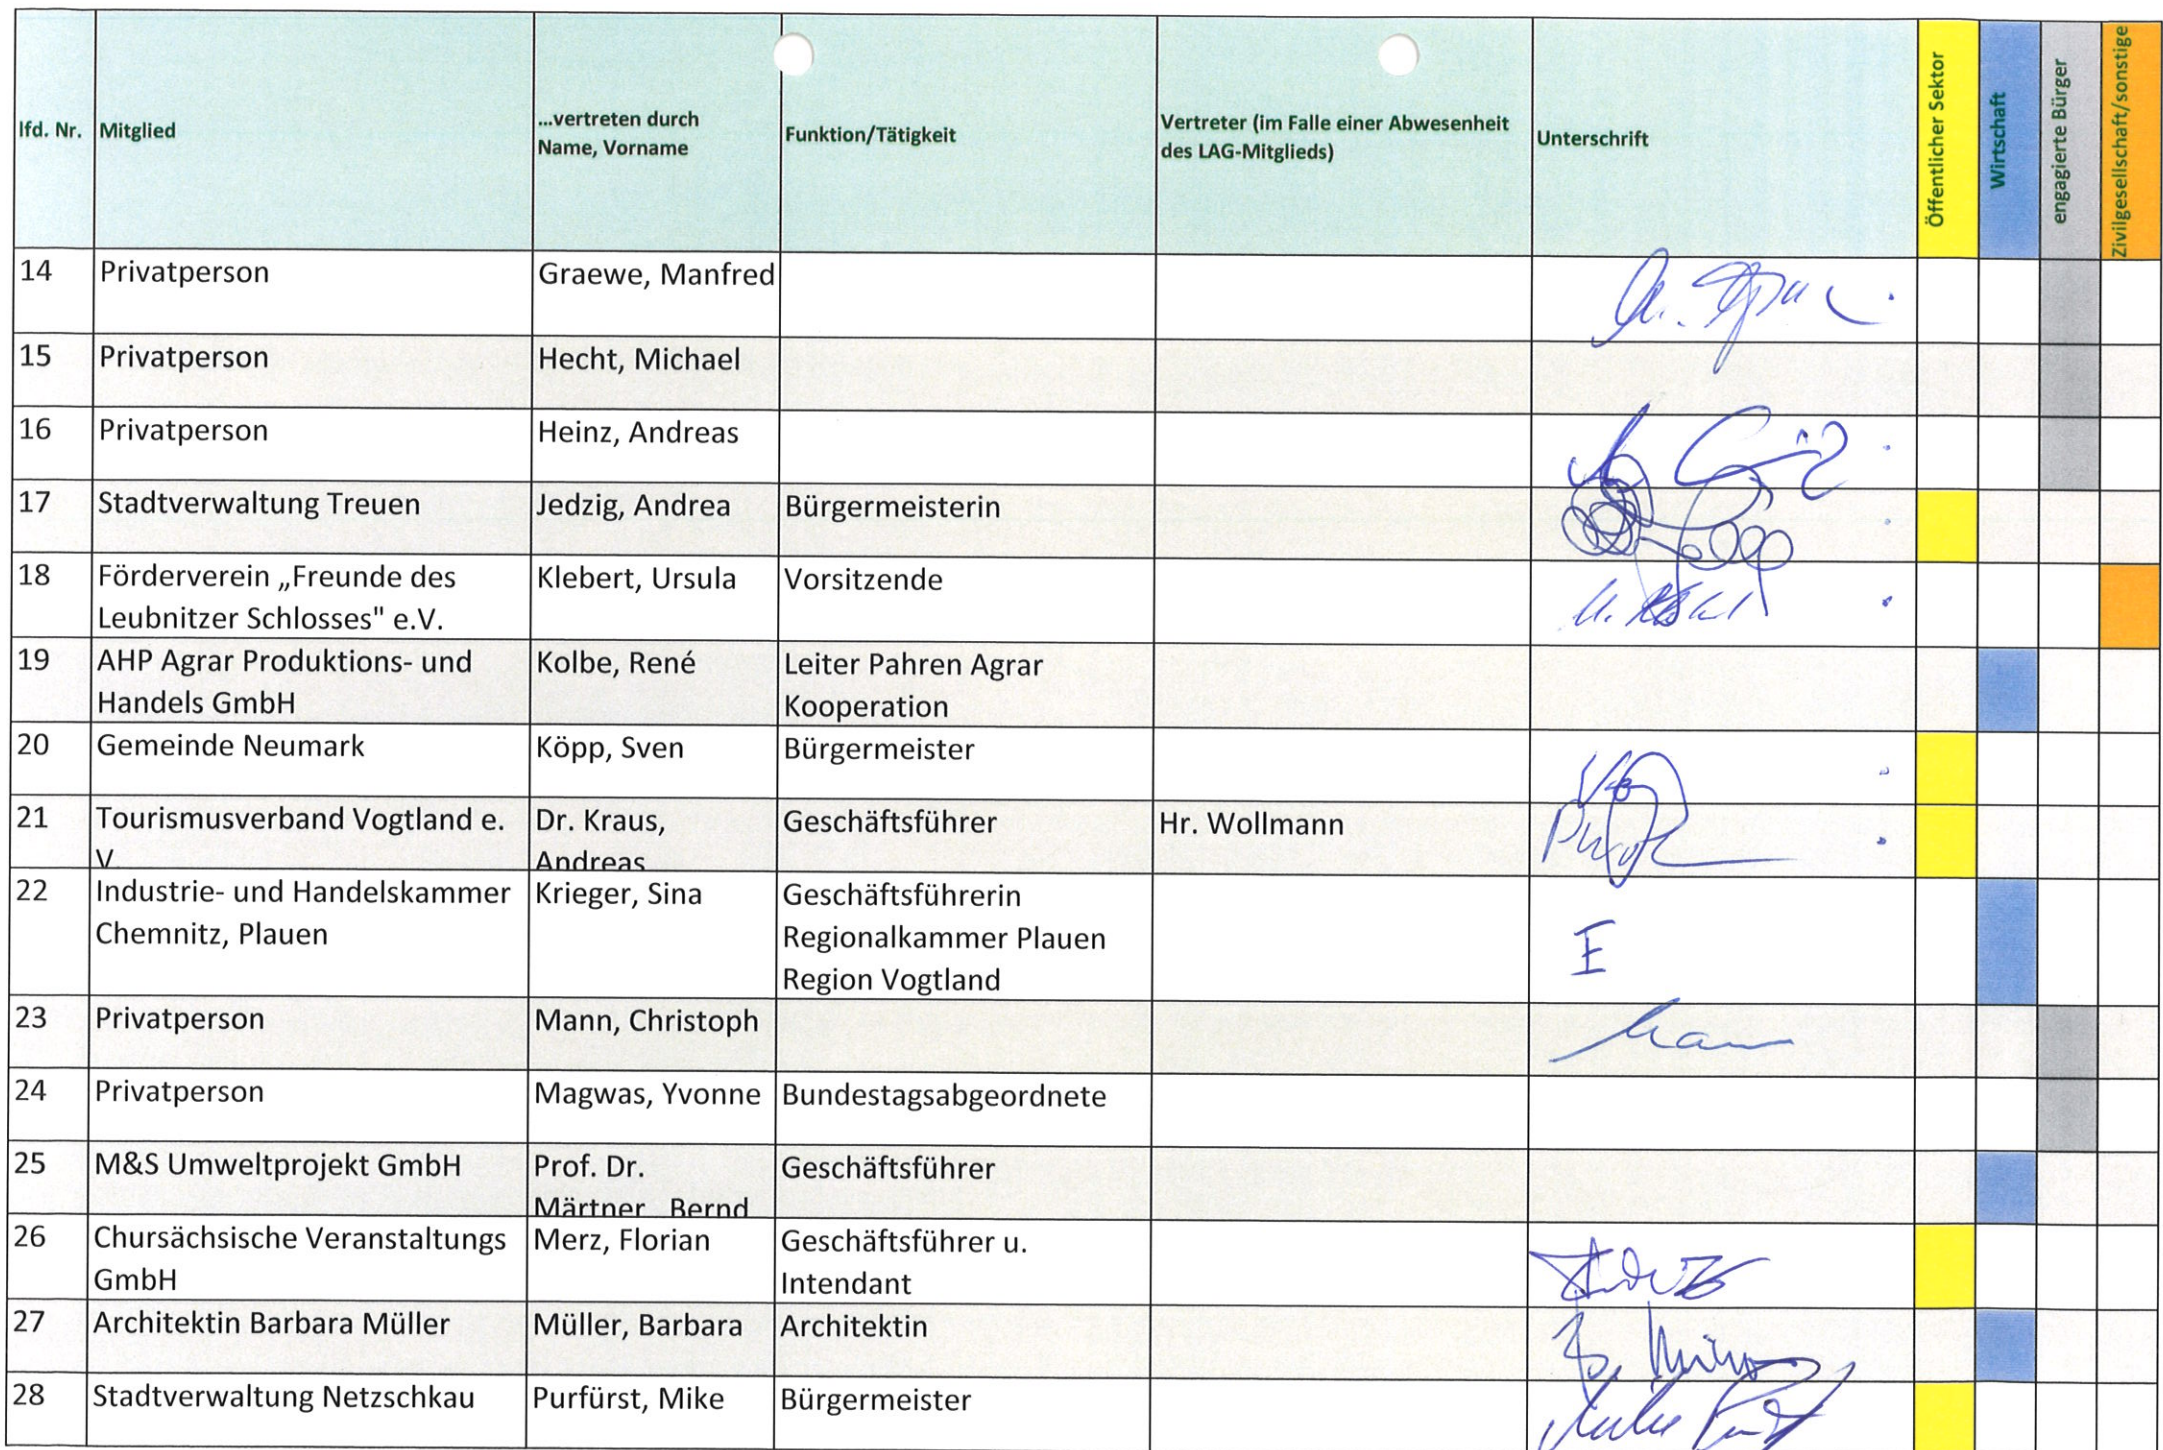 lfd. Nr. Mitglied ...vertreten durch Name, Vorname Funktion/Tätigkeit Vertreter (im Falle einer Abwesenheit des LAG-Mitglieds) Unterschrift Öffentlicher Sektor Wirtschaft engagierte Bürger Zivilgesellschaft/sonstige
14 Privatperson Graewe, Manfred
15 Privatperson Hecht, Michael
16 Privatperson Heinz, Andreas
17 Stadtverwaltung Treuen Jedzig, Andrea Bürgermeisterin
18 Förderverein „Freunde des Klebert, Ursula Vorsitzende
Leubnitzer Schlosses" e.V.
19 AHP Agrar Produktions- und Kolbe, René Leiter Pahren Agrar
Handels GmbH Kooperation
20 Gemeinde Neumark Köpp, Sven Bürgermeister
21 Tourismusverband Vogtland e. Dr. Kraus, Geschäftsführer Hr. Wollmann
V. Andreas
22 Industrie- und Handelskammer Krieger, Sina Geschäftsführerin
Chemnitz, Plauen Regionalkammer Plauen E
Region Vogtland
23 Privatperson Mann, Christoph Mann
24 Privatperson Magwas, Yvonne Bundestagsabgeordnete
25 M&S Umweltprojekt GmbH Prof. Dr. Geschäftsführer
Märtner Bernd
26 Chursächsische Veranstaltungs Merz, Florian Geschäftsführer u.
GmbH Intendant
27 Architektin Barbara Müller Müller, Barbara Architektin
28 Stadtverwaltung Netzschkau Purfürst, Mike Bürgermeister